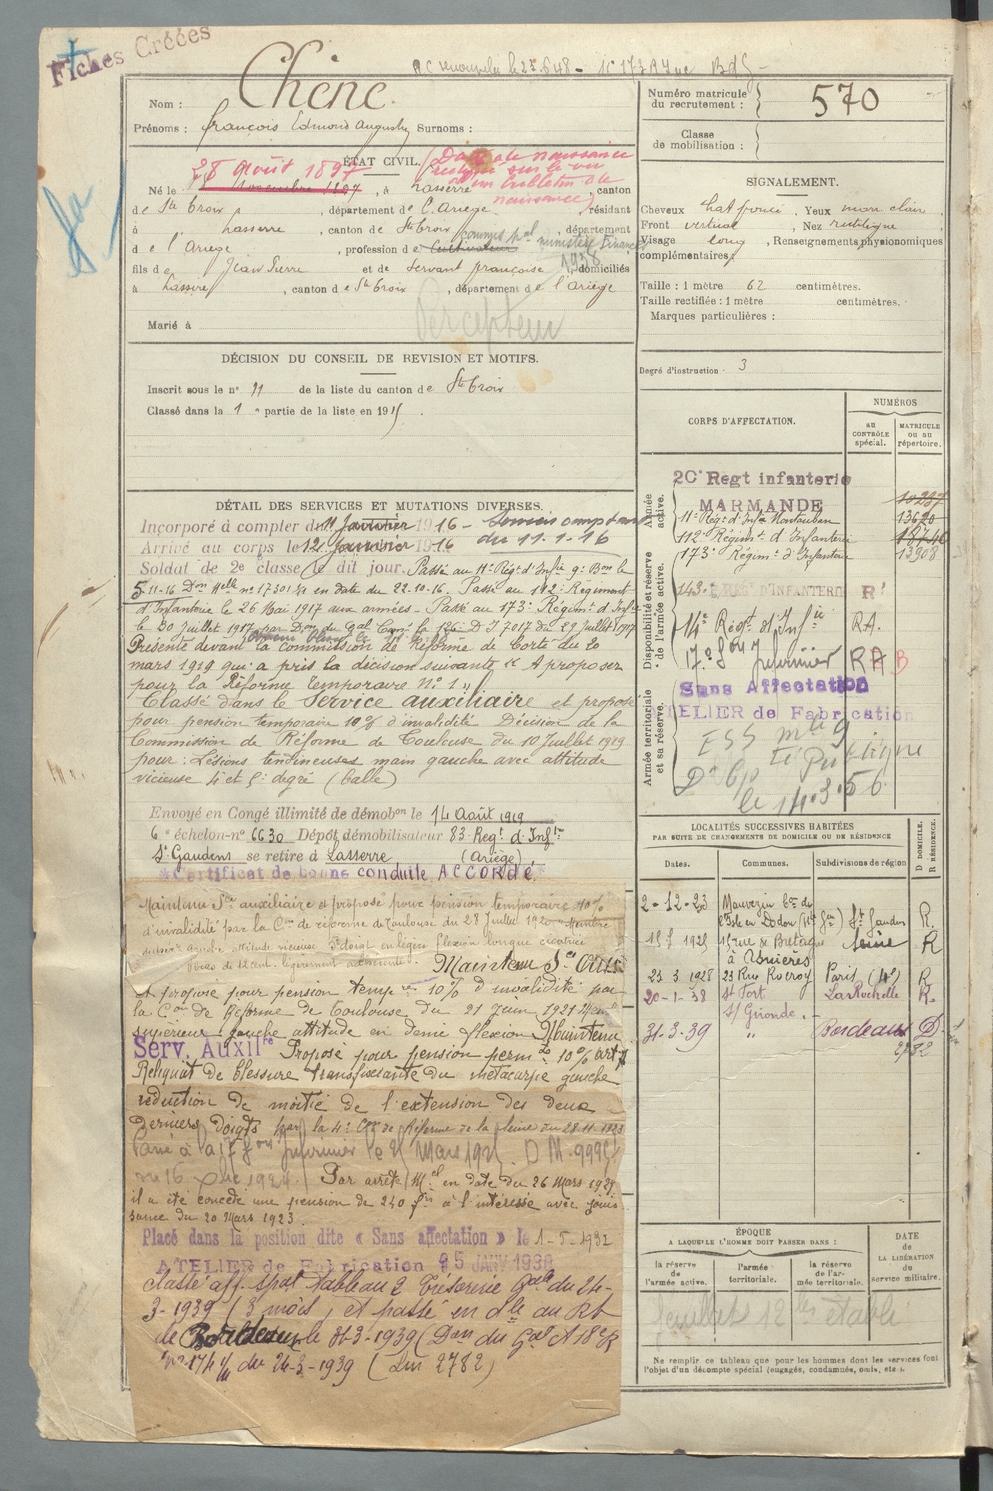 Fiches Créées
Nom : Chêne.
Prénoms : François Edmond Auguste Surnoms :
Numéro matricule du recrutement : 570
Classe de mobilisation :
ÉTAT CIVIL.
28 août 1897
(Date de naissance
sur le vu
d'un bulletin de
naissance)
Né le novembre 1897, à Lasserre, canton
de Ste Croix, département de l'Ariège, résidant
à Lasserre, canton de Ste Croix, département
de l'Ariège, profession de Cultivateur
1938
fils de Jean Pierre et de Servant Françoise, domiciliés
à Lasserre, canton de Ste Croix, département de l'Ariège
Percepteur
Marié à
SIGNALEMENT.
Cheveux chat foncé. Yeux mar clair
Front vertical, Nez rectiligne
Visage long, Renseignements physionomiques
complémentaires :
Taille : 1 mètre 62 centimètres.
Taille rectifiée : 1 mètre centimètres.
Marques particulières :
Degré d'instruction 3
DÉCISION DU CONSEIL DE REVISION ET MOTIFS.
Inscrit sous le n° 11 de la liste du canton de Ste Croix
Classé dans la 1e partie de la liste en 1915.
DÉTAIL DES SERVICES ET MUTATIONS DIVERSES.
Incorporé à compter du 11 Janvier 1916 -
du 11.1.16
Arrivé au corps le 12 Janvier 1916
Soldat de 2e classe le dit jour. Passé au 11e Régt d'Infie
5-11-16 n° 17301 en date du 22.10.16. Passé au 112e Régiment
d'Infanterie le 26 Mai 1917 aux armées - Passé au 173e Régimt d'Infie
le 30 Juillet 1917 du 29 Juillet 1917
Présenté devant la commission de Réforme de Corté du 20
mars 1919 qui a pris la décision suivante « A proposer
pour la Réforme temporaire N° 1 »
Classé dans le Service auxiliaire et proposé
pour pension temporaire 10% d'invalidité Décision de la
Commission de Réforme de Toulouse du 10 Juillet 1919
pour : Lésions tendineuses main gauche avec attitude
vicieuse 4e et 5e degré (balle)
Envoyé en Congé illimité de démobon le 14 Août 1919
6e échelon-n° 6630 Dépôt démobilisateur 83 Régt d'Infie
St Gaudens se retire à Lasserre (Ariège)
Certificat de bonne conduite ACCORDÉ
Maintenu Sce auxiliaire et proposé pour pension temporaire 10%
d'invalidité par la Con de réforme de Toulouse du 28 Juillet 1920
Maintenu Sce Auxre
et proposé pour pension tempre 10% d'invalidité par
la Con de Réforme de Toulouse du 21 Juin 1921
supérieur gauche attitude en demi flexion Maintenu
Serv. Auxilre Proposé pour pension perm 10%
Reliquat de blessure transfixiante du métacarpe gauche
réduction de moitié de l'extension des deux
derniers doigts par la 4e Con de Réforme de la Seine du 28.11.1923
Par arrêté Mel en date du 26 Mars 1925
il a été concédé une pension de 240 frs à l'intéressé avec jouis
sance du 20 Mars 1923.
Placé dans la position dite « Sans affectation » le 1-5-1932
ATELIER de Fabrication 25 JANV 1938
Classé aff. spal Tableau 2 Trésorerie Gale du 24-
3-1939 (3 mois) et passé en dle au Rt
de Bordeaux le 31-3-1939
du 24-3-1939 (Lm 2782)
CORPS D'AFFECTATION.
NUMÉROS
au CONTRÔLE spécial.
MATRICULE ou au répertoire.
Armée active.
20e Regt infanterie
MARMANDE 10237
11e Régt d'Infie Montauban 13620
112e Régimt d'Infanterie 18746
173e Régimt d'Infanterie 13908
Disponibilité et réserve de l'armée active.
143e RÉGt D'INFANTERIE R'
14e Régt d'Infie RA.
17e Son Infirmier RAB
Sans Affectation
ATELIER de Fabrication
Armée territoriale et sa réserve.
le 14.3.56
LOCALITÉS SUCCESSIVES HABITÉES
PAR SUITE DE CHANGEMENTS DE DOMICILE OU DE RÉSIDENCE
Dates. Communes. Subdivisions de région D DOMICILE. R RÉSIDENCE.
2-12-23 Mauvezin
l'Isle en Dodon St Gaudens R.
1925 rue de Bretagne Seine R
à Asnières
23 3 1928 23 Rue Rocroy Paris R
20-1-38 St Fort La Rochelle R.
s/ Gironde
31-3-39 " Bordeaux D.
2782
ÉPOQUE
A LAQUELLE L'HOMME DOIT PASSER DANS :
la réserve de l'armée active.
l'armée territoriale.
la réserve de l'armée territoriale.
DATE de la LIBÉRATION du service militaire.
Ne remplir ce tableau que pour les hommes dont les services font
l'objet d'un décompte spécial (engagés, condamnés, omis, etc.).